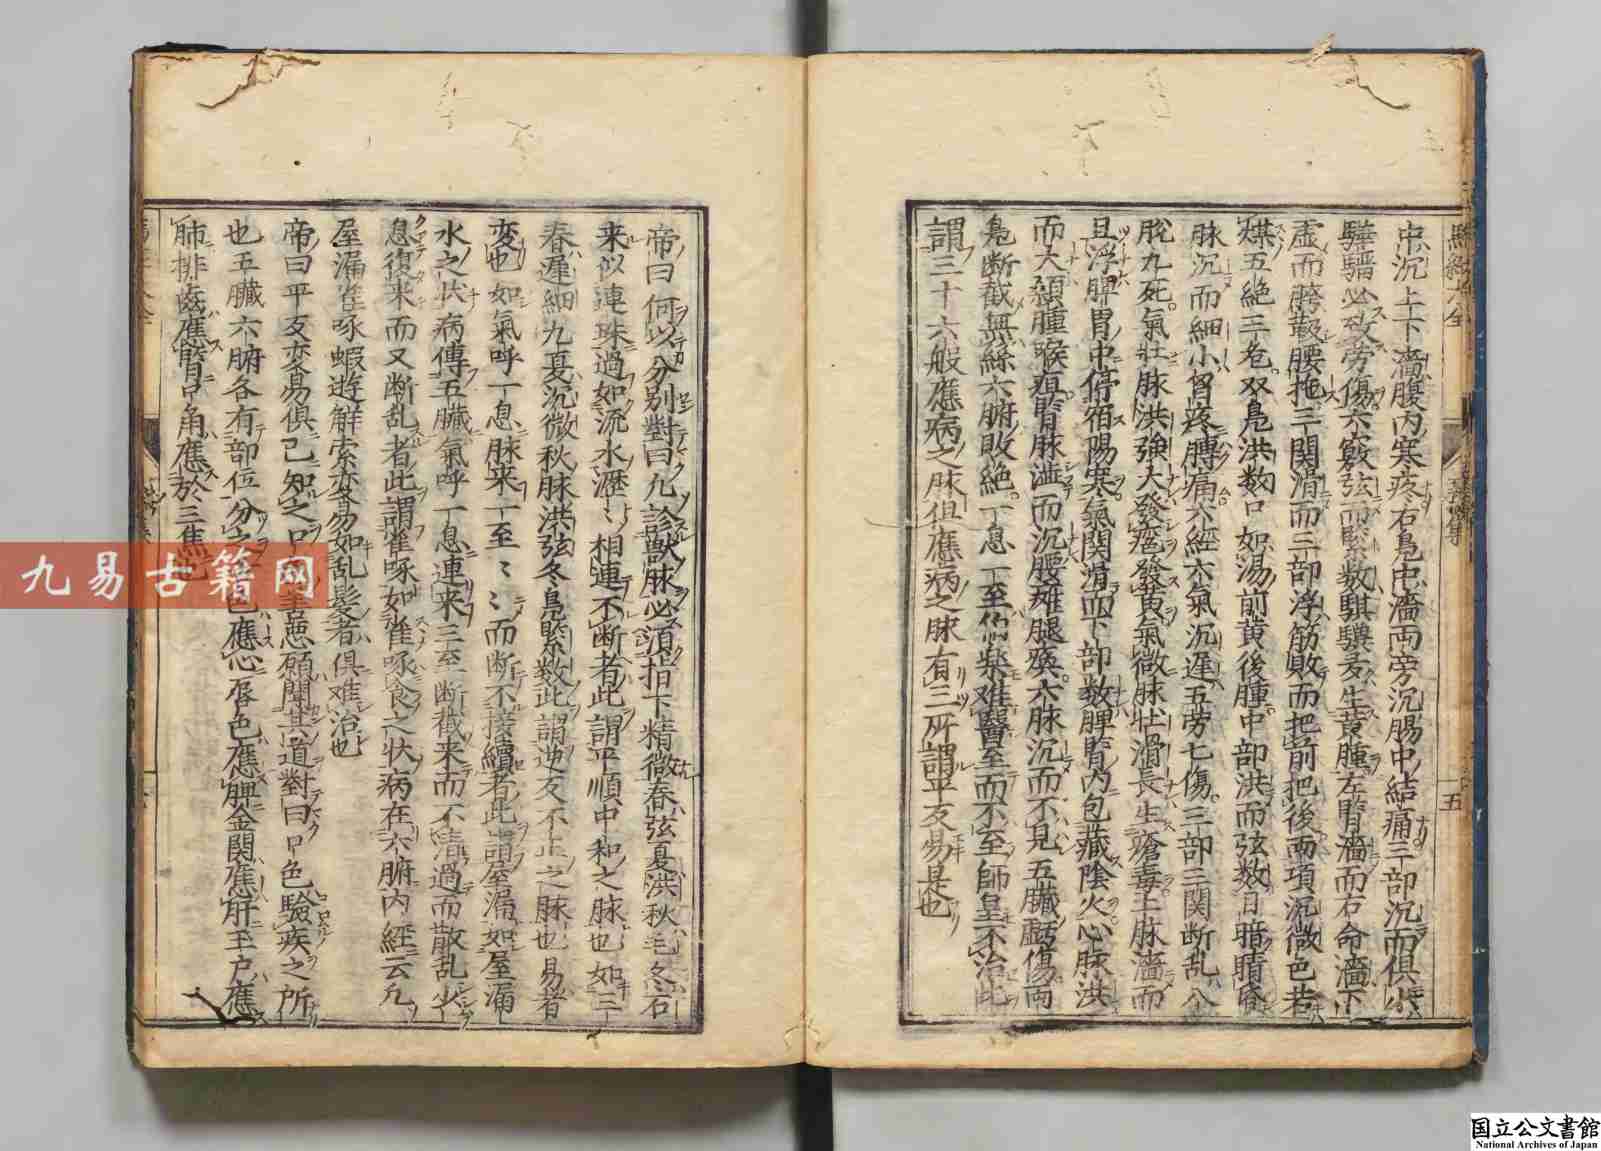 中沉上下濇腹内寒疼右鳧虫濇両旁沉腸中結痛三部沉而俱少
驊騮必致旁傷六竅弦而緊数騏驥多生黄腫左腎濇而右命濇下
虚而胯靸腰拖三関滑而三部浮筋敗而把前把後両項沉微色若
煤五絶三危双鳧洪数口如湯前黄後腫中部洪而弦数目暗睛昏
脉沉而細小胷疼膊痛六經六氣沉遲五蒡七傷三部三関断乱八
脱九死氣壮脉洪強大發瘡發黄氣微脉壮滑長生瘡毒上脉濇而
且浮脾胃中停宿陽寒氣関滑而下部数脾腎内包藏陰火心脉洪
而大顙腫喉疽腎脉澁而沉腰雄腿瘓六脉沉而不見五臓虧傷両
鳧断截無絲六腑敗絶一息一至的然难醫至而不至師皇不治此
謂三十六般應病之脉但應病之脉有三所謂平反易是也
帝曰何以分别對曰凢診獣脉必須指下精微春弦夏洪秋毛冬石
来似連珠過如流水瀝〻相連不断者此謂平順中和之脉也如三
春遲細九夏沉微秋脉洪弦冬鳧緊数此謂迯反不正之脉也易者
変也如氣呼一息脉来一至〻〻而断不接續者此謂屋漏如屋漏
水之状病傳五臓氣呼一息連来三至断截来而不清過而散乱少
息復来而又断乱者此謂雀啄如雀啄食之状病在六腑内經云凢
屋漏雀啄蝦遊解索変易如乱髪者俱难治也
帝曰平反变易俱已知之口色善悪願聞其道對曰口色驗疾之所
也五臓六腑各有部位分之舌色應心唇色應脾金関應肝玉户應
肺排齒應腎口角應於三焦也
五
九易古籍网
国立公文書館
National Archives of Japan